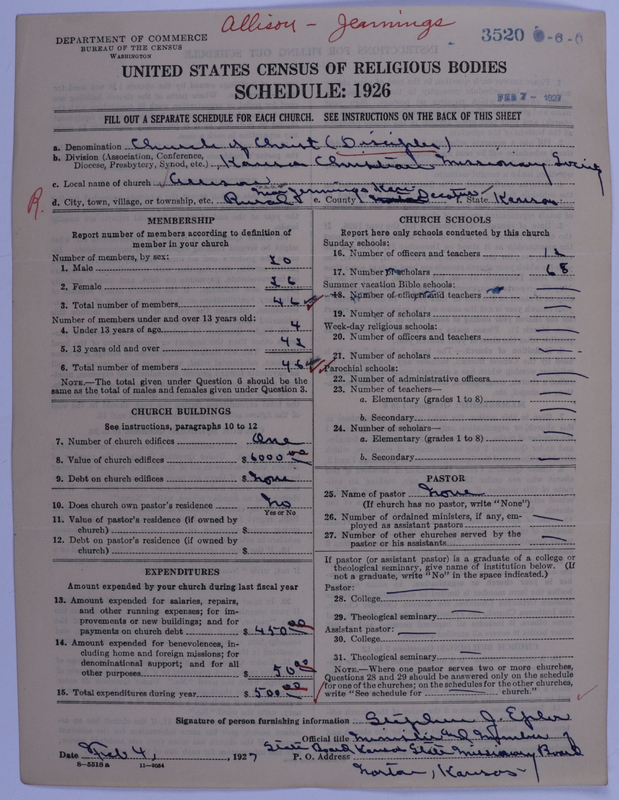 Allison - Jennings
DEPARTMENT OF COMMERCE
BUREAU OF THE CENSUS
WASHINGTON
3520
UNITED STATES CENSUS OF RELIGIOUS BODIES
SCHEDULE: 1926
FEB 7 - 1927
FILL OUT A SEPARATE SCHEDULE FOR EACH CHURCH. SEE INSTRUCTIONS ON THE BACK OF THIS SHEET
a. Denomination Church of Christ (Disciples)
b. Division (Association, Conference, Diocese, Presbytery, Synod, etc.) Kansas Christian Missionary Society
c. Local name of church Allison
near Jennings Kan
d. City, town, village, or township, etc. Rural e. County Decatur f. State Kansas
R.
MEMBERSHIP
Report number of members according to definition of member in your church
Number of members, by sex:
1. Male 20
2. Female 26
3. Total number of members 46
Number of members under and over 13 years old:
4. Under 13 years of age 4
5. 13 years old and over 42
6. Total number of members 46
NOTE.—The total given under Question 6 should be the same as the total of males and females given under Question 3.
CHURCH BUILDINGS
See instructions, paragraphs 10 to 12
7. Number of church edifices One
8. Value of church edifices $6000 00
9. Debt on church edifices $ None
10. Does church own pastor's residence No
Yes or No
11. Value of pastor's residence (if owned by church) $
12. Debt on pastor's residence (if owned by church) $
EXPENDITURES
Amount expended by your church during last fiscal year
13. Amount expended for salaries, repairs, and other running expenses; for improvements or new buildings; and for payments on church debt $450 00
14. Amount expended for benevolences, including home and foreign missions; for denominational support; and for all other purposes $50 00
15. Total expenditures during year $500 00
CHURCH SCHOOLS
Report here only schools conducted by this church
Sunday schools:
16. Number of officers and teachers 12
17. Number of scholars 68
Summer vacation Bible schools:
18. Number of officers and teachers
19. Number of scholars
Week-day religious schools:
20. Number of officers and teachers
21. Number of scholars
Parochial schools:
22. Number of administrative officers
23. Number of teachers—
a. Elementary (grades 1 to 8)
b. Secondary
24. Number of scholars—
a. Elementary (grades 1 to 8)
b. Secondary
PASTOR
25. Name of pastor None
(If church has no pastor, write "None")
26. Number of ordained ministers, if any, employed as assistant pastors
27. Number of other churches served by the pastor or his assistants
If pastor (or assistant pastor) is a graduate of a college or theological seminary, give name of institution below. (If not a graduate, write "No" in the space indicated.)
Pastor:
28. College
29. Theological seminary
Assistant pastor:
30. College
31. Theological seminary
NOTE.—Where one pastor serves two or more churches, Questions 28 and 29 should be answered only on the schedule for one of the churches; on the schedules for the other churches, write "See schedule for church."
Signature of person furnishing information Stephen J. Epler
Official title Minister and Member of
State Board Kansas State Missionary Board
Date Feb 4, 1927 P. O. Address
Norton, Kansas
8-5518a 11-9064